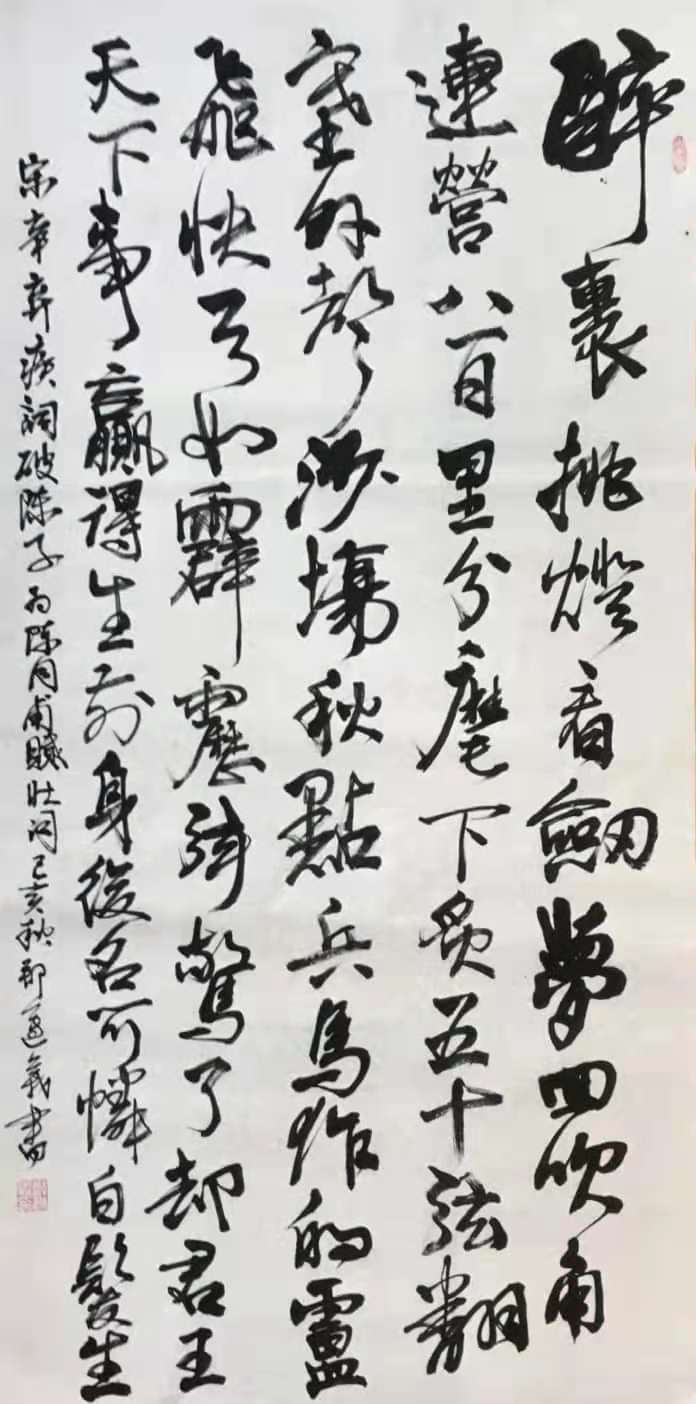 醉裏挑燈看劍夢回吹角
連營八百里分麾下炙五十弦翻
塞外聲沙場秋點兵馬作的盧
飛快弓如霹靂弦驚了卻君王
天下事贏得生前身後名可憐白髮生
宋辛弃疾詞破陣子為陳同甫賦壯詞己亥秋邵遂義書